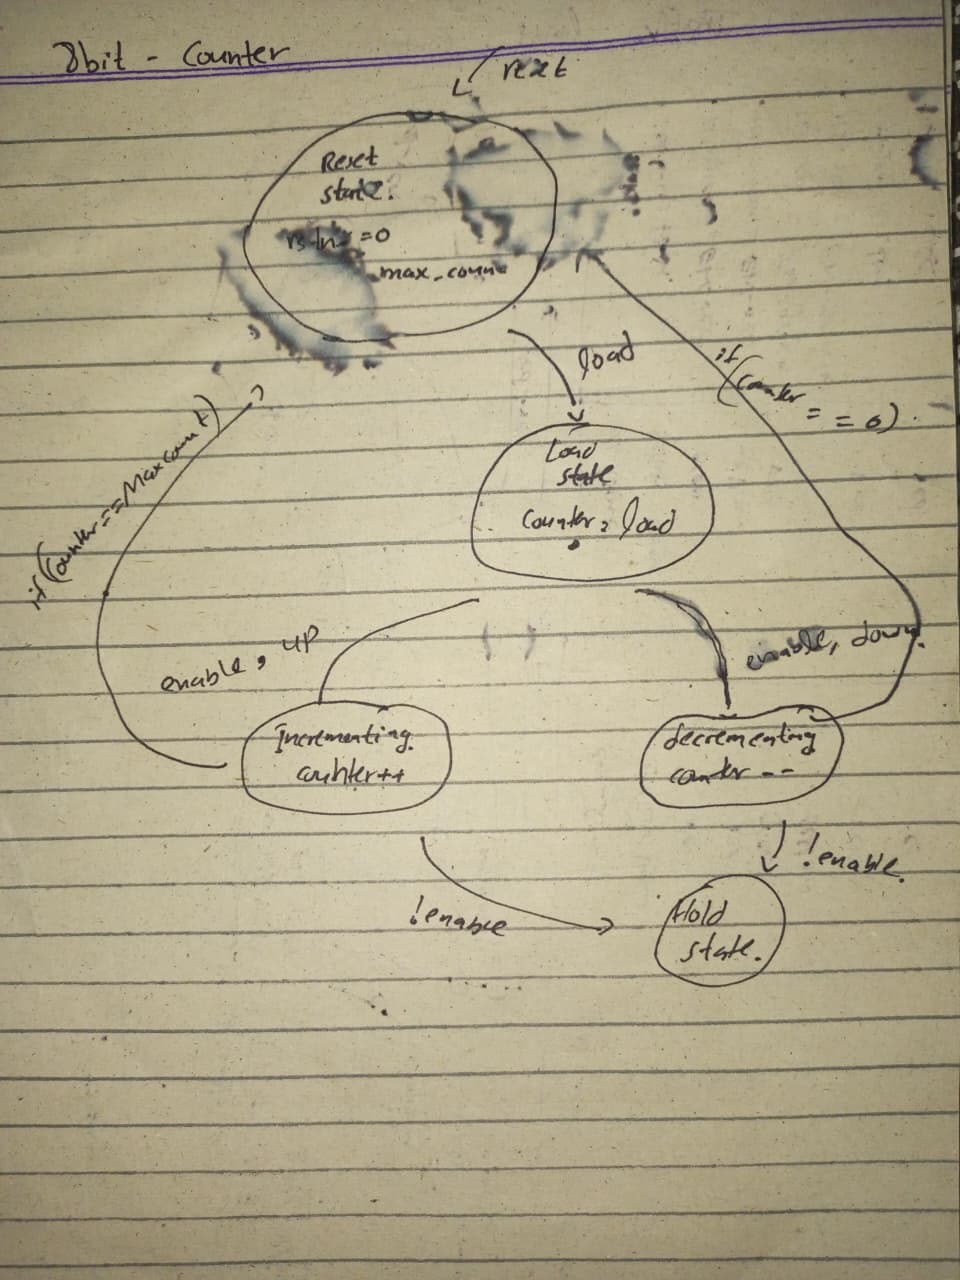 8bit - Counter
reset
Reset
state.
=0
max_coun
load
if
(counter
= = 0)
Load
state
counter = load
if (counter == Maxcount)
enable, up
enable, down.
Incrementing.
counter++
decrementing
counter --
!enable
!enable.
Hold
state.